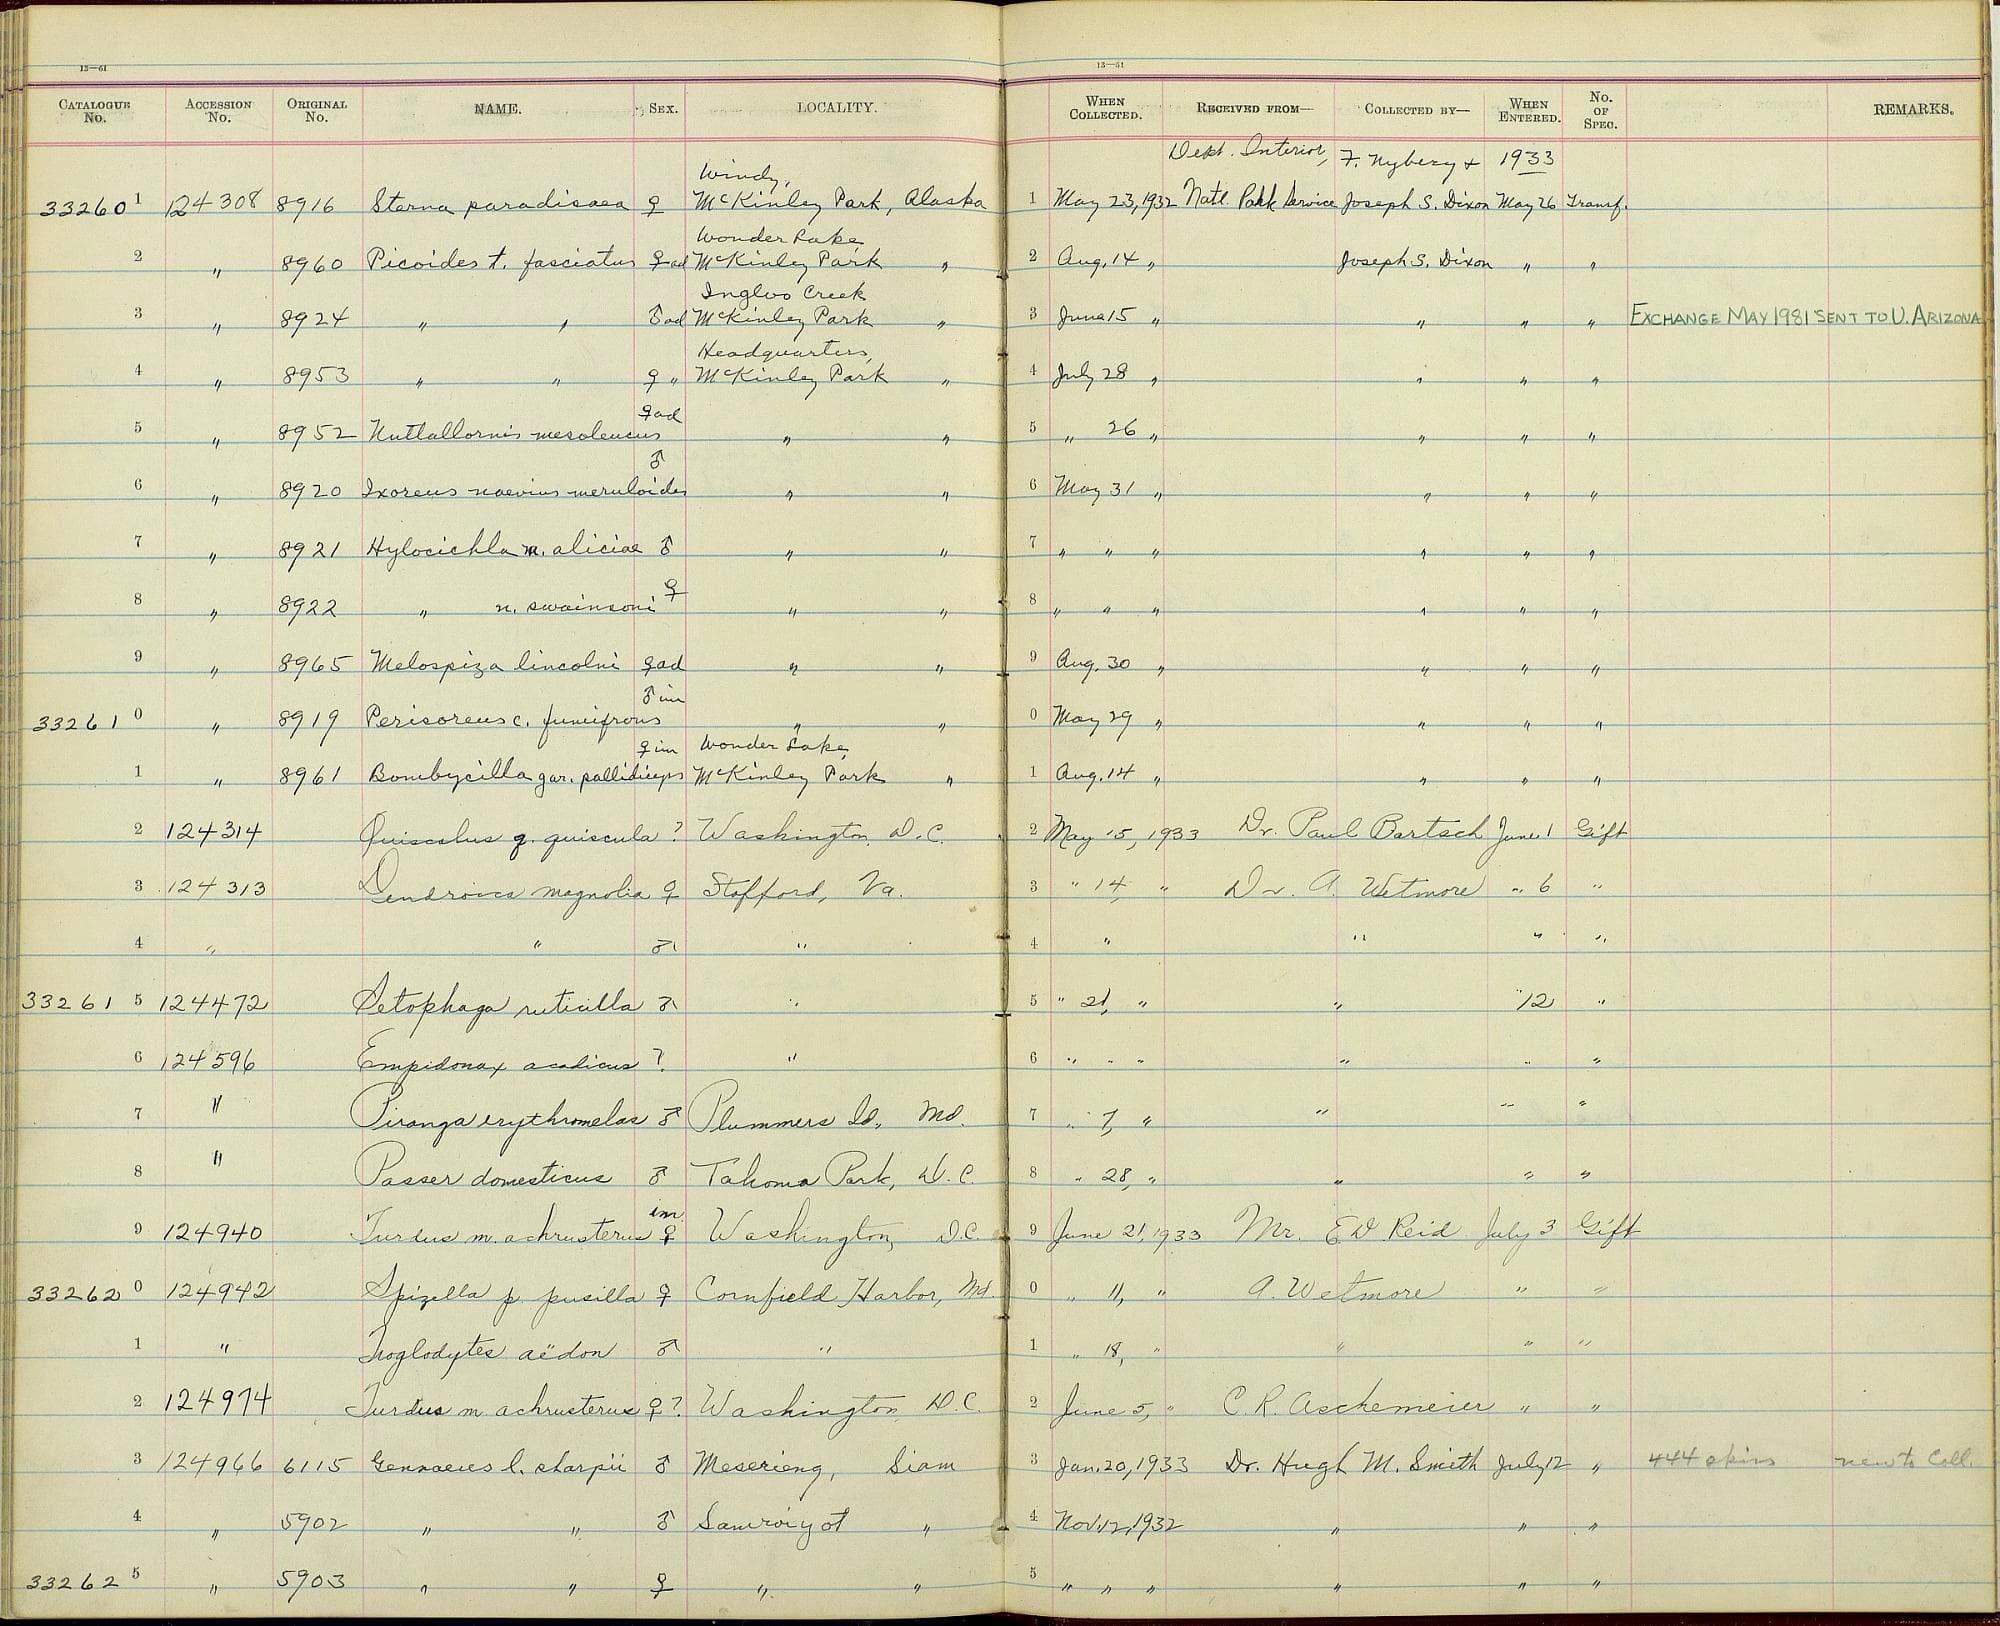 13—61
13—51
CATALOGUE No. ACCESSION No. ORIGINAL No. NAME. SEX. LOCALITY. WHEN COLLECTED. RECEIVED FROM— COLLECTED BY— WHEN ENTERED. No. OF SPEC. REMARKS.
Windy, Dept. Interior, F. Nyberg + 1933
33260 1 124308 8916 Sterna paradisaea ♀ McKinley Park, Alaska 1 May 23, 1932 Natl. Park Service Joseph S. Dixon May 26 Transf.
Wonder Lake
2 " 8960 Picoides t. fasciatus ♀ad McKinley Park " 2 Aug. 14 " Joseph S. Dixon " "
Creek
3 " 8924 " " ♂ad McKinley Park " 3 June 15 " " " " EXCHANGE MAY 1981 SENT TO U. ARIZONA
Headquarters,
4 " 8953 " " ♀ " McKinley Park " 4 July 28 " " " "
♀ad
5 " 8952 Nuttallornis mesoleucus " " 5 " 26 " " " "
♂
6 " 8920 Ixoreus naevius meruloides " " 6 May 31 " " " "
7 " 8921 Hylocichla m. aliciae ♂ " " 7 " " " " " "
8 " 8922 " u. swainsoni ♀ " " 8 " " " " " "
9 " 8965 Melospiza lincolni ♀ad " " 9 Aug. 30 " " " "
♂ im
33261 0 " 8919 Perisoreus c. fumifrons " " 0 May 29 " " " "
♀ im Wonder Lake,
1 " 8961 Bombycilla gar. pallidiceps McKinley Park " 1 Aug. 14 " " " "
2 124314 Quiscalus q. quiscula ? Washington, D.C. 2 May 15, 1933 Dr. Paul Bartsch June 1 Gift
3 124313 Dendroica magnolia ♀ Stafford, Va. 3 " 14, " Dr. A. Wetmore " 6 "
4 " " ♂ " 4 " " " "
33261 5 124472 Setophaga ruticilla ♂ " 5 " 21, " " " 12 "
6 124596 Empidonax acadicus ? " 6 " " " " " "
7 " Piranga erythromelas ♂ Plummers Id., Md. 7 " 7, " " " "
8 " Passer domesticus ♂ Takoma Park, D.C. 8 " 28, " " " "
im.
9 124940 Turdus m. achrusterus ♀ Washington, D.C. 9 June 21, 1933 Mr. E D Reid July 3 Gift
33262 0 124942 Spizella p. pusilla ♀ Cornfield Harbor, Md. 0 " 11, " A. Wetmore " "
1 " Troglodytes aëdon ♂ " 1 " 18, " " " "
2 124974 Turdus m. achrusterus ♀? Washington D.C. 2 June 5, " C. R. Aschemeier " "
3 124966 6115 Gennaeus l. sharpii ♂ Meserieng, Siam 3 Jan. 20, 1933 Dr. Hugh M. Smith July 12 " 444 skins new to Coll.
4 " 5902 " " ♂ Samroiyot " 4 Nov. 12, 1932 " " "
33262 5 " 5903 " " ♀ " " 5 " " " " " "